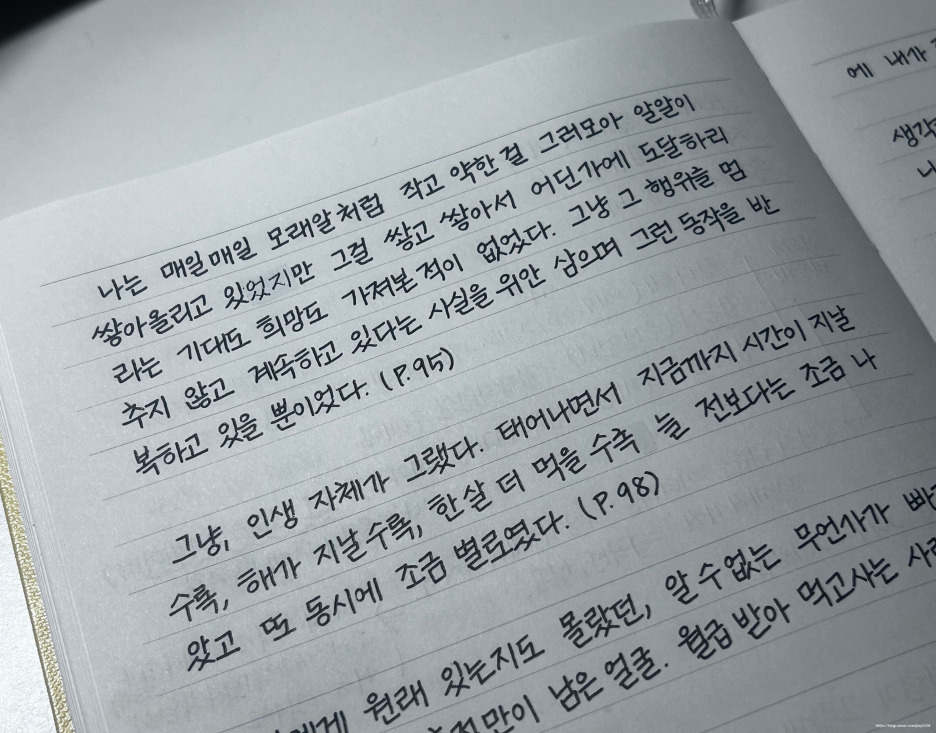 나는 매일매일 모래알처럼 작고 약한 걸 그러모아 알알이
쌓아올리고 있었지만 그걸 쌓고 쌓아서 어딘가에 도달하리
라는 기대도 희망도 가져본 적이 없었다. 그냥 그 행위를 멈
추지 않고 계속하고 있다는 사실을 위안 삼으며 그런 동작을 반
복하고 있을 뿐이었다. (P.95)
그냥, 인생 자체가 그랬다. 태어나면서 지금까지 시간이 지날
수록, 해가 지날수록, 한 살 더 먹을수록 늘 전보다는 조금 나
았고 또 동시에 조금 별로였다. (P.98)
원래 있는지도 몰랐던, 알 수 없는 무언가가
만이 남은 얼굴. 월급 받아 먹고사는
에 내가
생각
니